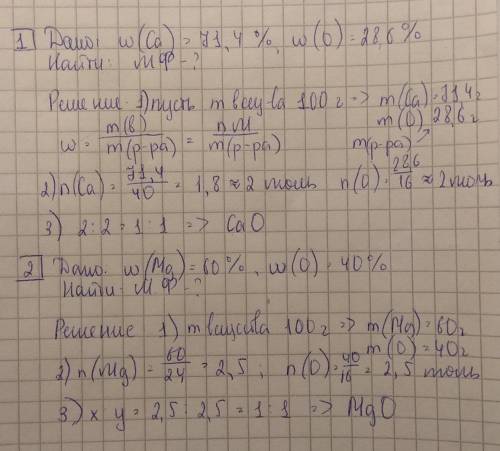 1 Дано: w(Ca) = 71,4%, w(O) = 28,6%
Найти: МФ - ?
Решение 1) пусть m вещ-ва 100 г => m(Ca) = 71,4 г
m(O) 28,6 г
w = m(в) / m(р-ра) = nM / m(р-ра) m(р-ра)
2) n(Ca) = 71,4 / 40 = 1,8 ≈ 2 моль n(O) = 28,6 / 16 ≈ 2 моль
3) 2 : 2 = 1 : 1 => CaO
2 Дано: w(Mg) = 60%, w(O) = 40%
Найти МФ - ?
Решение 1) m вещества 100 г => m(Mg) = 60 г
m(O) = 40 г
2) n(Mg) = 60 / 24 = 2,5 ; n(O) = 40 / 16 = 2,5 моль
3) x y = 2,5 : 2,5 = 1 : 1 => MgO